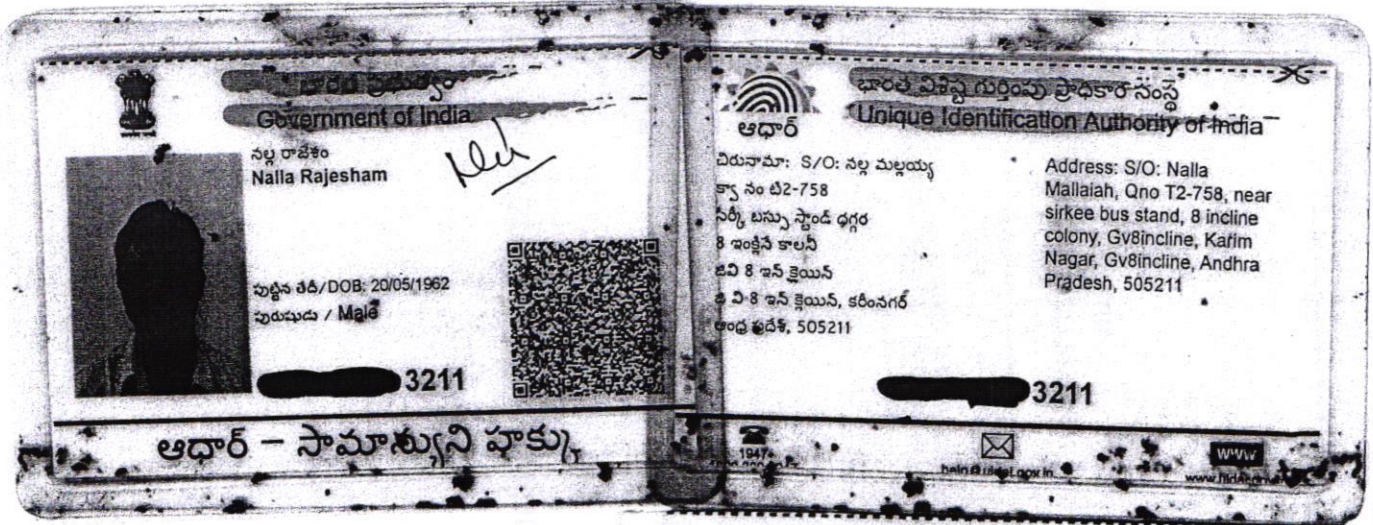 భారత ప్రభుత్వం
Government of India
నల్ల రాజేశం
Nalla Rajesham
పుట్టిన తేదీ/DOB: 20/05/1962
పురుషుడు / Male
3211
ఆధార్ – సామాన్యుని హక్కు
ఆధార్
భారత విశిష్ట గుర్తింపు ప్రాధికార సంస్థ
Unique Identification Authority of India
చిరునామా: S/O: నల్ల మల్లయ్య
క్వా నం టి2-758
సిర్కీ బస్సు స్టాండ్ ధగ్గర
8 ఇంక్లైన్ కాలనీ
జివి 8 ఇన్ క్లెయిన్
జి వి 8 ఇన్ క్లెయిన్, కరీంనగర్
ఆంధ్ర ప్రదేశ్, 505211
Address: S/O: Nalla
Mallaiah, Qno T2-758, near
sirkee bus stand, 8 incline
colony, Gv8incline, Karim
Nagar, Gv8incline, Andhra
Pradesh, 505211
3211
1947
help@uidai.gov.in
WWW